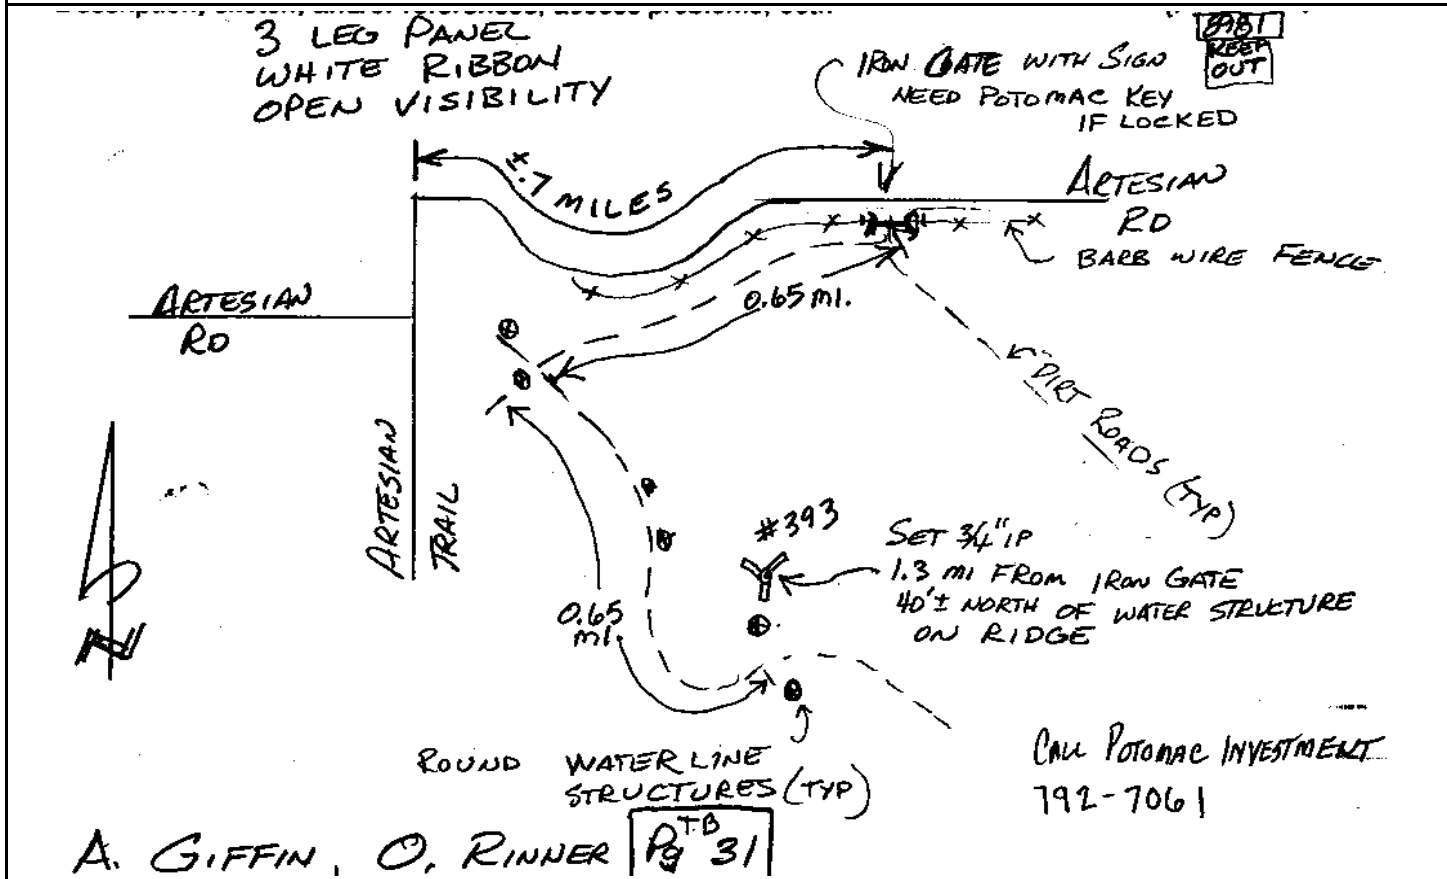 3 LEG PANEL
WHITE RIBBON
OPEN VISIBILITY
IRON GATE WITH SIGN
8981
KEEP
OUT
NEED POTOMAC KEY
IF LOCKED
±.7 MILES
ARTESIAN
RD
BARB WIRE FENCE
0.65 MI.
ARTESIAN
RD
DIRT ROADS (TYP)
ARTESIAN
TRAIL
N
#393
SET 3/4" IP
1.3 MI FROM IRON GATE
40'± NORTH OF WATER STRUCTURE
ON RIDGE
0.65
MI.
ROUND WATER LINE
STRUCTURES (TYP)
CALL POTOMAC INVESTMENT
792-7061
A. GIFFIN, O. RINNER
TB
Pg 31